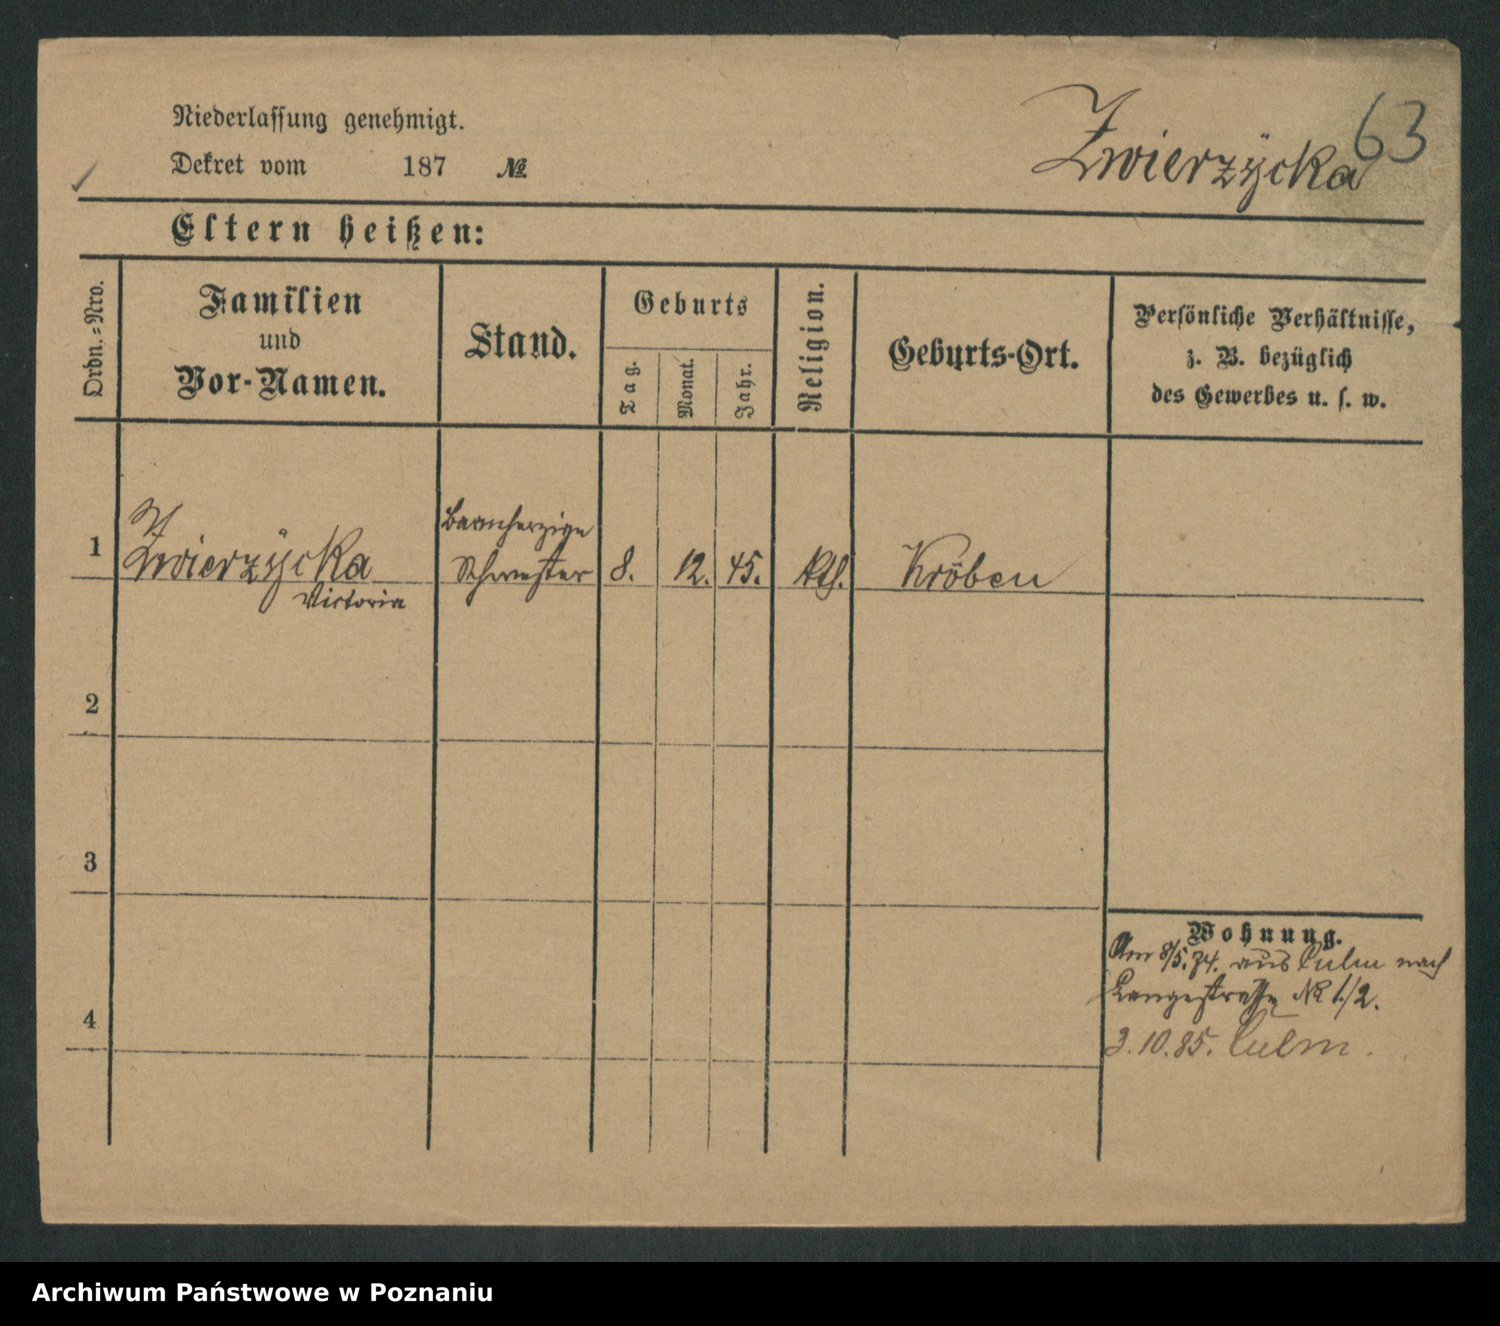 63
Niederlassung genehmigt.
Dekret vom 187 №
Zwierzÿcka
Eltern heißen:
Ordn.=Nro.
Familien
und
Vor-Namen.
Stand.
Geburts
Tag.
Monat.
Jahr.
Religion.
Geburts-Ort.
Persönliche Verhältnisse,
z. B. bezüglich
des Gewerbes u. s. w.
1 Zwierzÿcka Victoria
Barmherzige
Schwester
8. 12. 45. kth. Kröben
2
3
4
Wohnung.
Am 8/5.74. aus Culm nach
Langestraße № 1./2.
3.10.85. Culm.
Archiwum Państwowe w Poznaniu